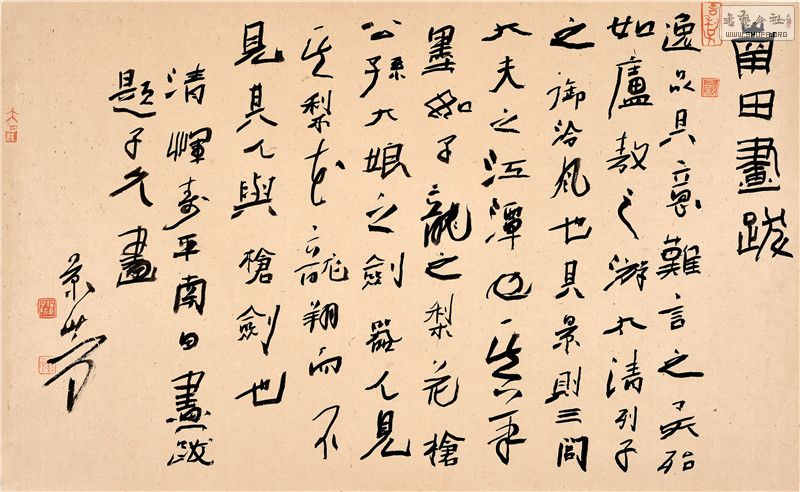 南田畫跋
逸品其意難言之矣殆
如盧敖之游太清列子
之御泠風也其景則三閭
大夫之江潭也其筆
墨如子龍之梨花槍
公孫大娘之劍器人見
其梨花龍翔而不
見其人與槍劍也
清惲壽平南田畫跋
題子久畫
书艺公社
WWW.SHUFA.ORG